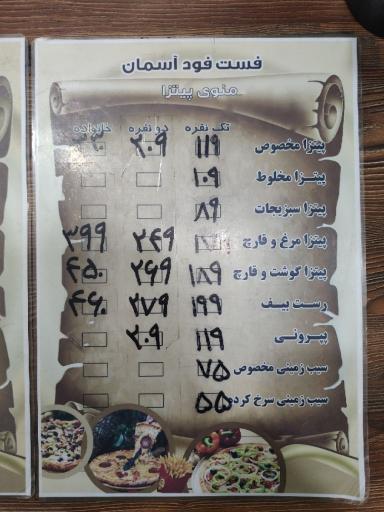 فست فود آسمان
منوی پیتزا
تک نفره دو نفره خانواده
پیتزا مخصوص ۱۱۹ ۲۰۹
پیتزا مخلوط ۱۰۹
پیتزا سبزیجات ۸۹
پیتزا مرغ و قارچ ۲۴۹ ۳۹۹
پیتزا گوشت و قارچ ۱۸۹ ۲۶۹ ۴۵۰
رست بیف ۱۹۹ ۲۷۹ ۴۶۰
پپرونی ۱۱۹ ۲۰۹
سیب زمینی مخصوص ۷۵
سیب زمینی سرخ کرده ۵۵